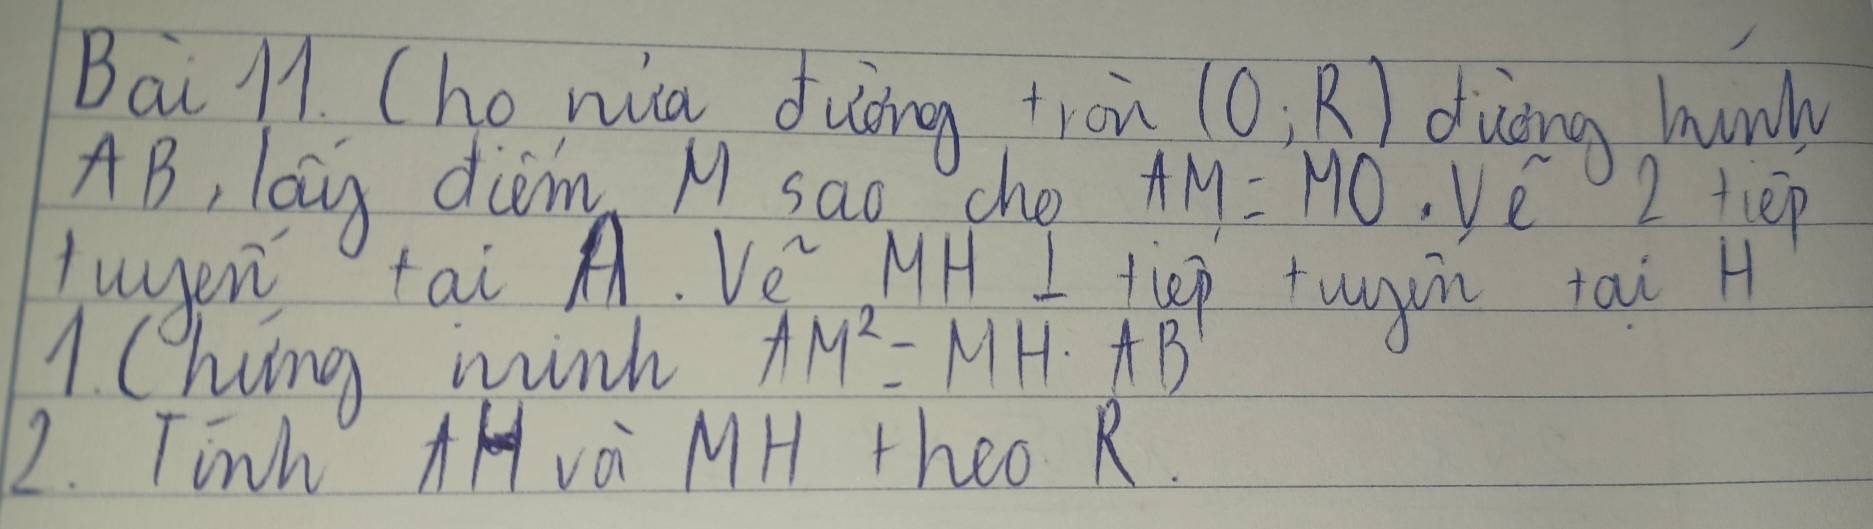 Bài 11. Cho nửa đường tròn (O; R) đường kính
AB, lấy điểm M sao cho AM = MO. Vẽ 2 tiếp
tuyến tại A. Vẽ MH ⊥ tiếp tuyến tại H
1. Chứng minh AM² = MH. AB
2. Tính AH và MH theo R.